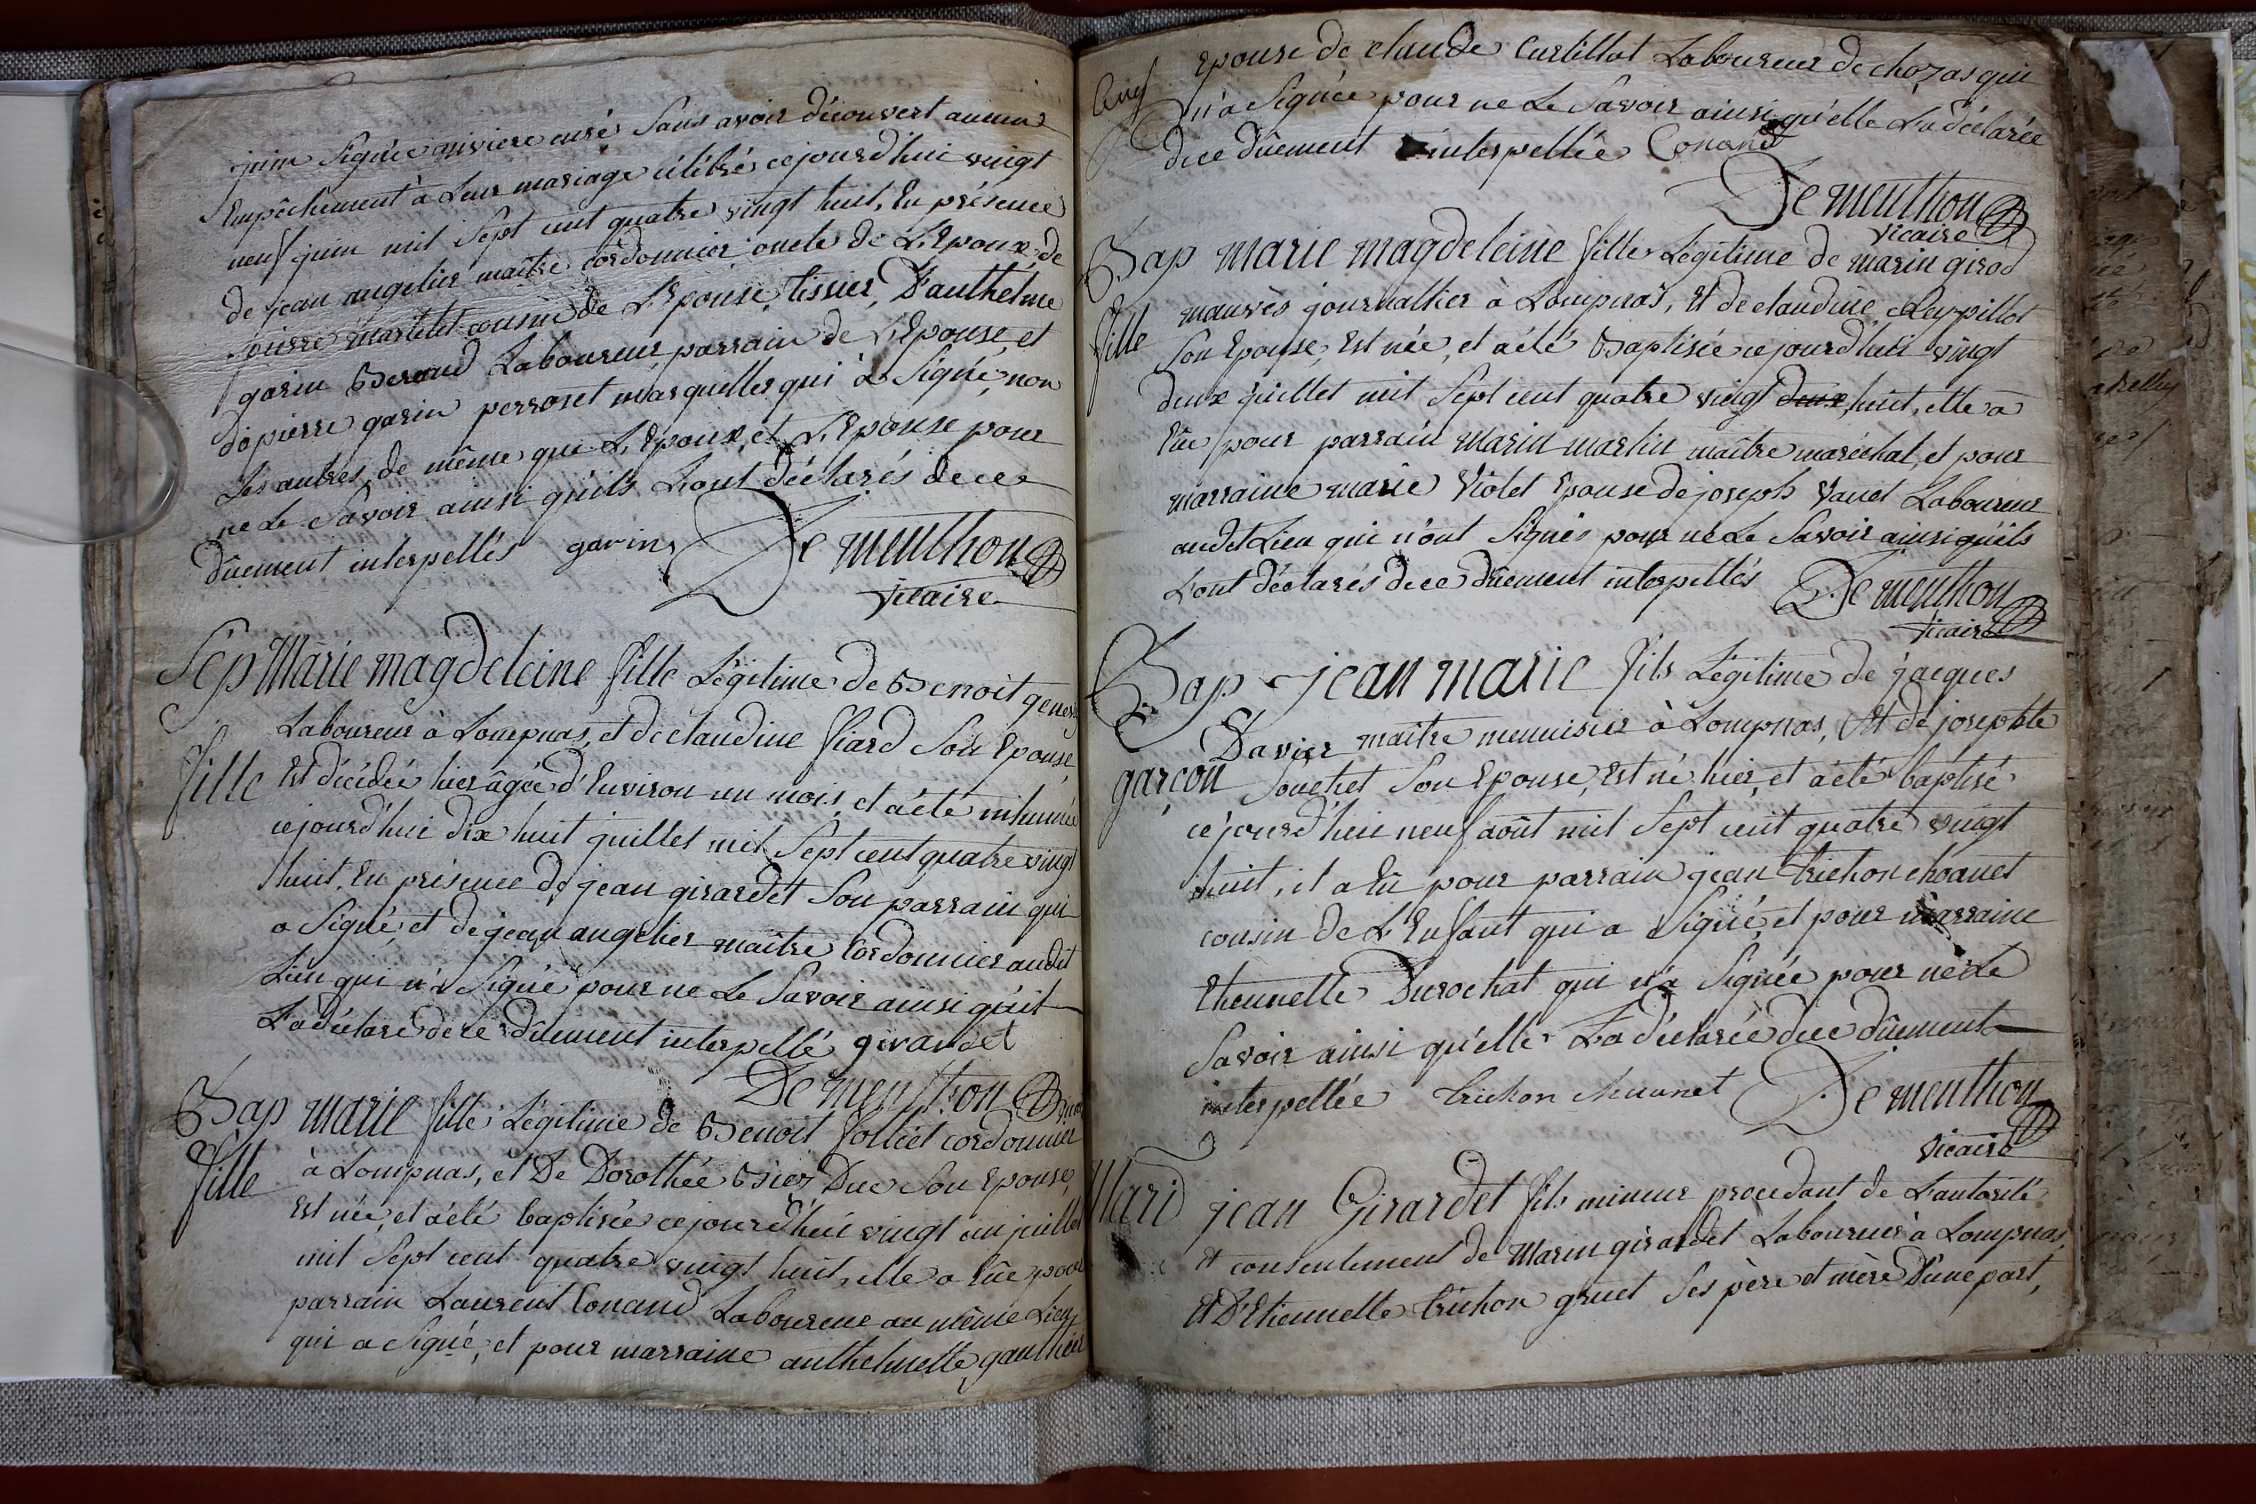 juin signée riviere curé sans avoir découvert aucun
Empêchement à Leur mariage célébré cejourd'hui vingt
neuf juin mil sept cent quatre vingt huit, En présence
de jean angelier maître cordonnier oncle de L'Epoux, de
pierre martelet cousin de L'Epouse, tissier, D'anthelme
garin Beraud Laboureur parrain de L'Epouse, et
de pierre garin perroset marguiller qui a signé, non
Les autres de même que L'Epoux, et L'Epouse pour
ne Le savoir ainsi qu'ils L'ont déclarés de ce
dûement interpellés garin De menthon
vicaire
Sép Marie magdeleine fille Légitime de Benoit
fille Laboureur à Lompnas, et de claudine fiard son Epouse,
Est décédée hier âgée d'Environ un mois, et a été inhumée
cejourd'hui dix huit juillet mil sept cent quatre vingt
huit, En présence de jean girardet son parrain qui
a signé, et de jean angelier maître cordonnier audit
Lieu qui n'a signé pour ne Le savoir ainsi qu'il
L'a déclaré de ce dûement interpellé girardet
De menthon
Bap marie fille Légitime de Benoit Jolliet cordonnier
fille à Lompnas, et De Dorothée Duc son Epouse,
Est née, et a été baptisée cejourd'hui vingt un juillet
mil sept cent quatre vingt huit, elle a Eûe pour
parrain Laurent Conand Laboureur au même Lieu
qui a signé, et pour marraine anthelmette gauthier
Epouse de claude Curtillat Laboureur de chozas qui
n'a signée pour ne Le savoir ainsi qu'elle L'a déclarée
de ce dûement interpellée Conand
De menthon
vicaire
Bap marie magdeleine fille Légitime de marin girod
fille mauvès journallier à Lompnas, Et de claudine Reypillot
son Epouse, Est née, et a été Baptisée cejourd'hui vingt
deux juillet mil sept cent quatre vingt deux, huit, elle a
Eûe pour parrain marin martin maître maréchal, et pour
marraine marie Violet Epouse de joseph Vanel Laboureur
audit Lieu qui n'ont signés pour ne Le savoir ainsi qu'ils
L'ont déclarés de ce dûement interpellés De menthon
vicaire
Bap jean marie fils Légitime de jacques
Davier maître menuisier à Lompnas, Et de josephte
garçon souchet son Epouse, Est né hier, et a été baptisé
cejourd'hui neuf août mil sept cent quatre vingt
huit, il a Eû pour parrain jean trichon choanet
cousin de L'Enfant qui a signé, et pour marraine
Etiennette Durochat qui n'a signée pour ne Le
savoir ainsi qu'elle L'a déclarée de ce dûement
interpellée trichon chuanet De menthon
vicaire
Mari jean Girardet fils mineur procedant de L'autorité
et consentement de Marin girardet Laboureur à Lompnas,
Et D'Etiennette trichon gruet ses père et mère D'une part,